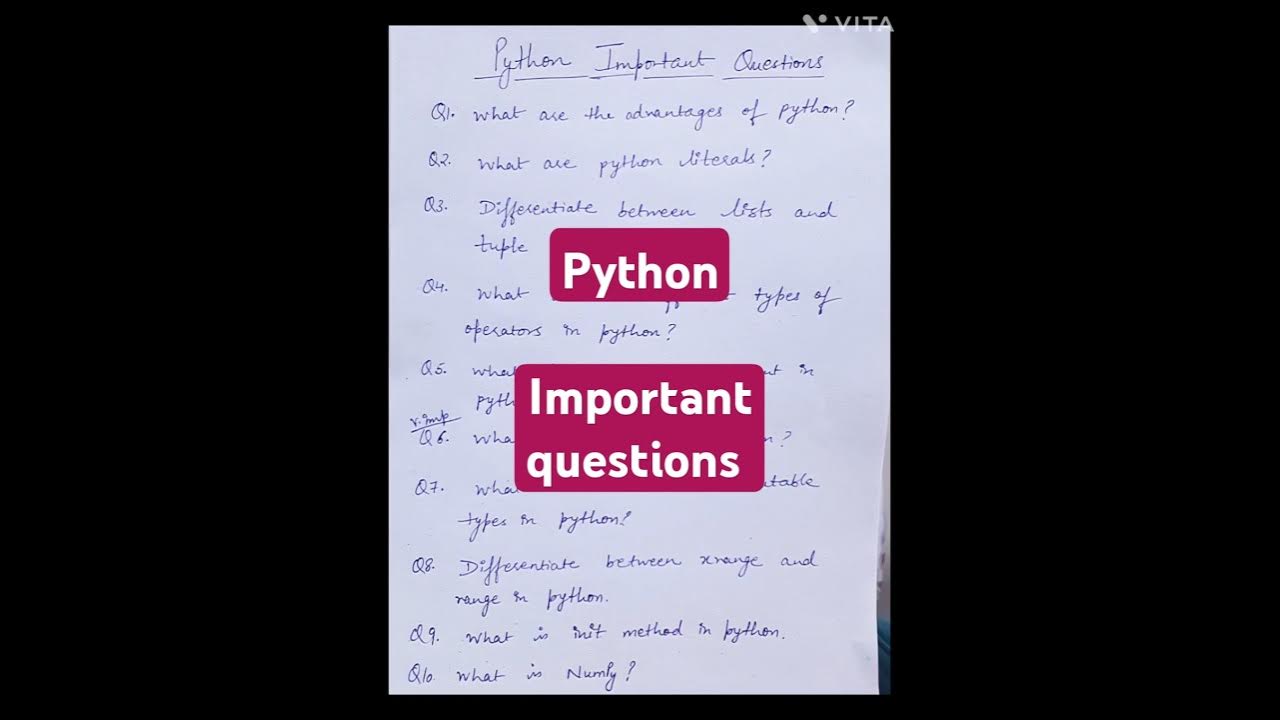 VITA
Python Important Questions
Q1. What are the advantages of python?
Q2. What are python literals?
Q3. Differentiate between lists and
tuple
Python
Q4. What types of
operators in python?
Q5. in
Important
questions
v.imp
Q6. ?
Q7.
types in python?
Q8. Differentiate between xrange and
range in python.
Q9. What is init method in python.
Q10. What is Numpy?